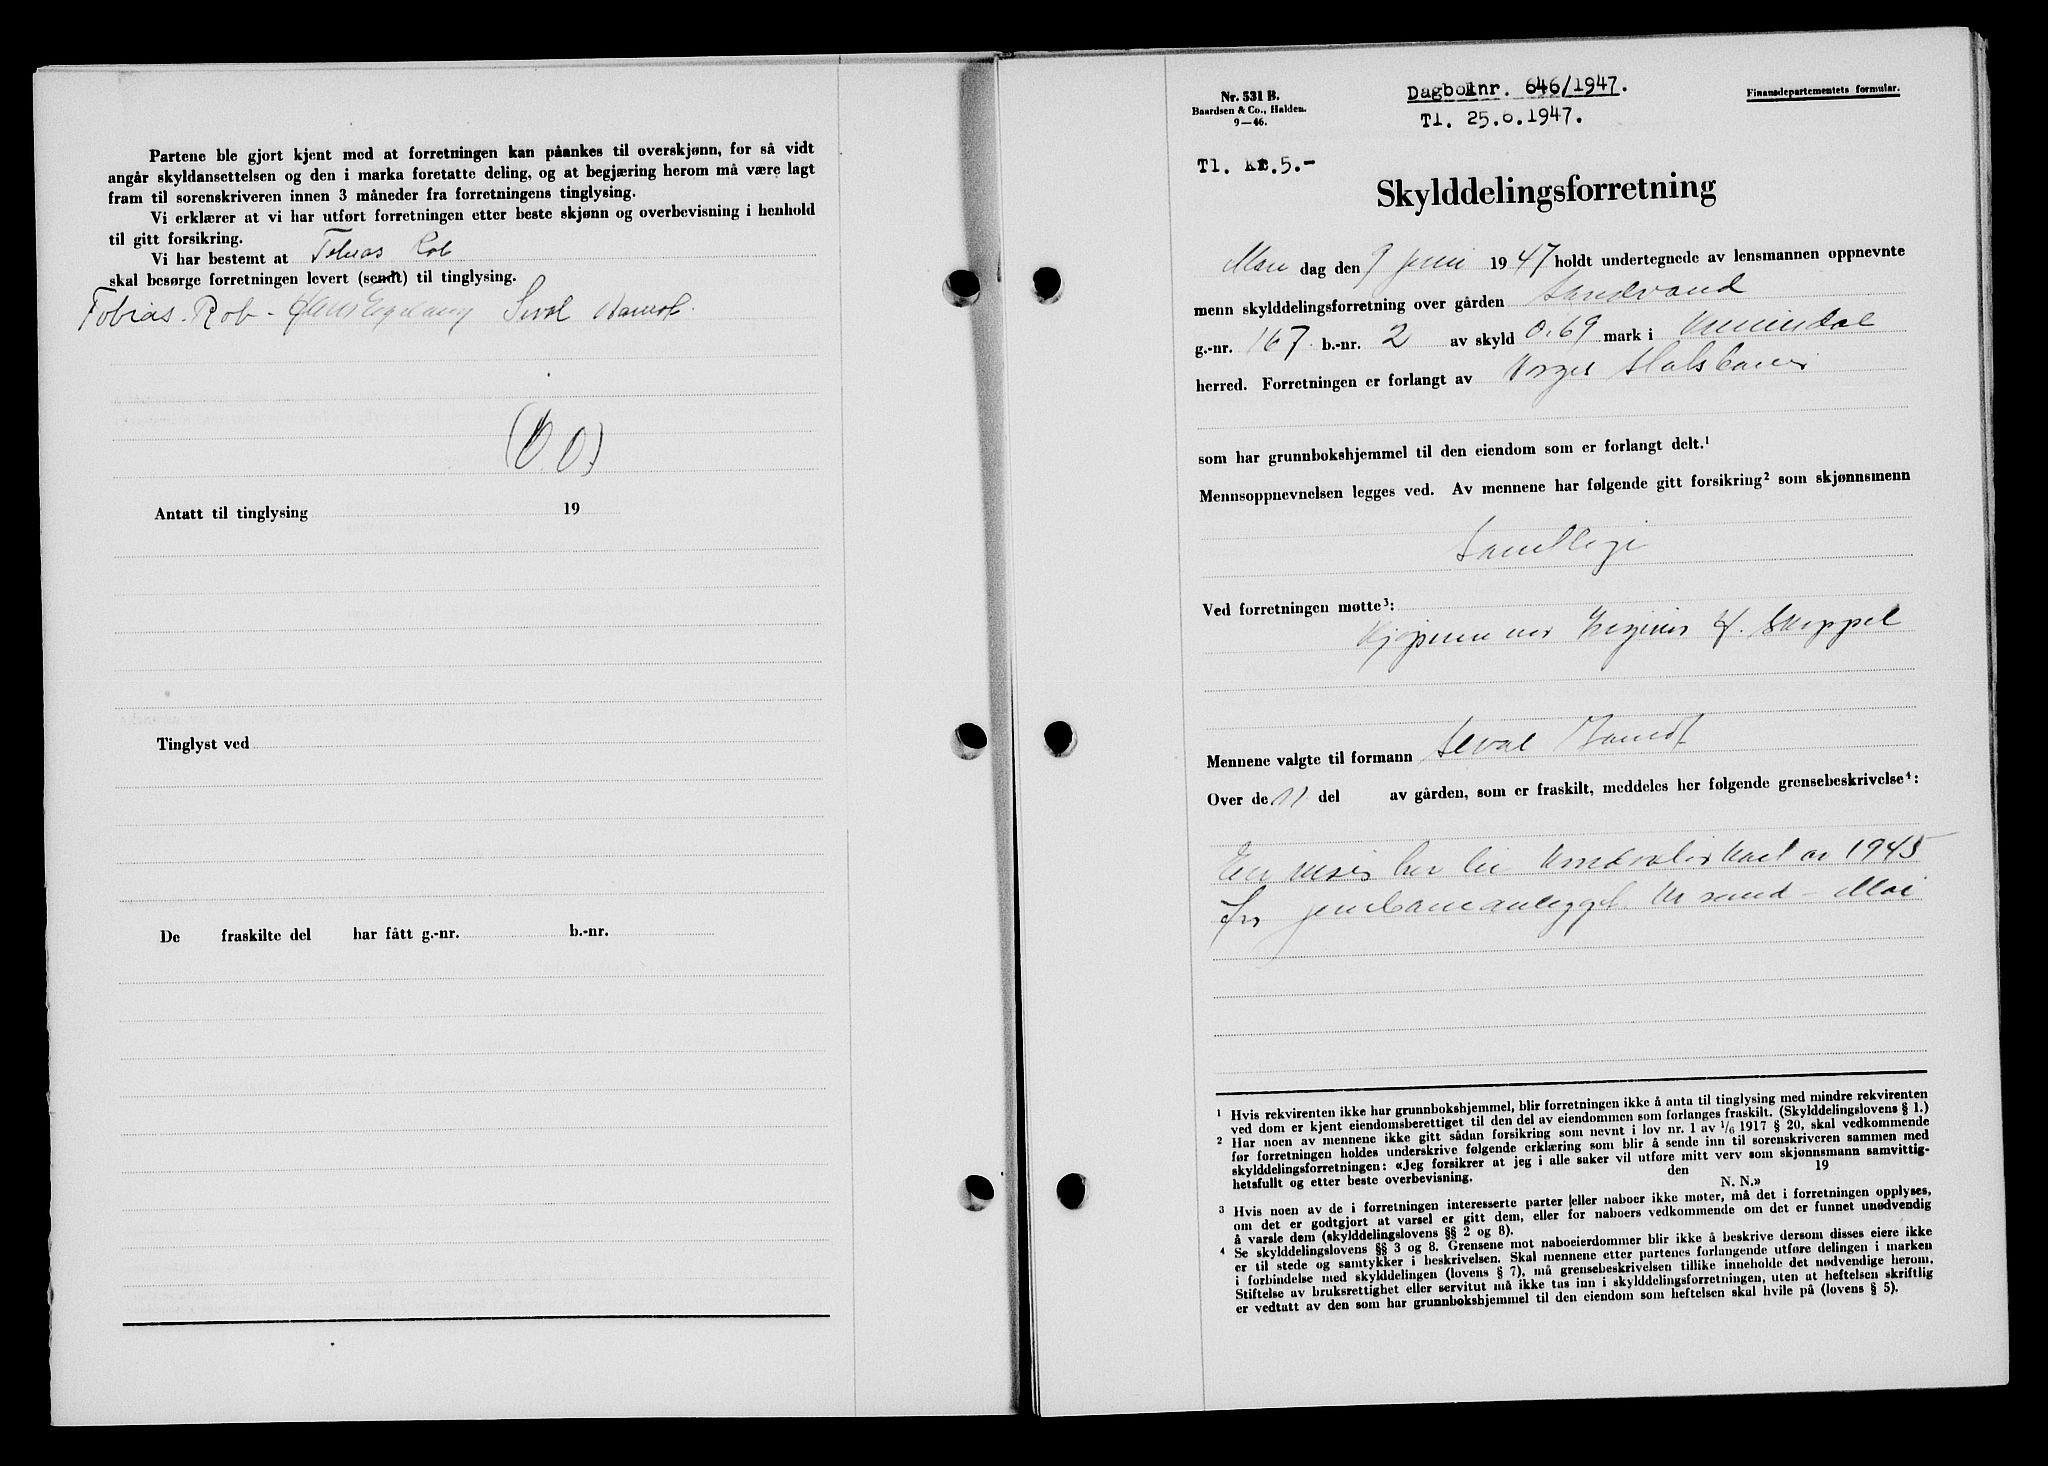 Partene ble gjort kjent med at forretningen kan påankes til overskjønn, for så vidt
angår skyldansettelsen og den i marka foretatte deling, og at begjæring herom må være lagt
fram til sorenskriveren innen 3 måneder fra forretningens tinglysing.
Vi erklærer at vi har utført forretningen etter beste skjønn og overbevisning i henhold
til gitt forsikring.
Vi har bestemt at Tobias Rob
skal besørge forretningen levert (sendt) til tinglysing.
Tobias Rob - Hans Egeland Sival
Antatt til tinglysing 19
Tinglyst ved
De fraskilte del har fått g.-nr. b.-nr.
Nr. 531 B.
Baardsen & Co., Halden.
9—46.
Dagboknr. 646/1947.
Tl. 25.6.1947.
Finansdepartementets formular.
Tl. kr.5.-
Skylddelingsforretning
Man dag den 9 juni 1947 holdt undertegnede av lensmannen oppnevnte
menn skylddelingsforretning over gården Sandvand
g.-nr. 167 b.-nr. 2 av skyld 0.69 mark i Kvinesdal
herred. Forretningen er forlangt av Norges Statsbaner
som har grunnbokshjemmel til den eiendom som er forlangt delt.¹
Mennsoppnevnelsen legges ved. Av mennene har følgende gitt forsikring² som skjønnsmenn
Samtlige
Ved forretningen møtte³:
Kjøperne ved H. Skeppel
Mennene valgte til formann
Over de 11 del av gården, som er fraskilt, meddeles her følgende grensebeskrivelse⁴:
1945
for jernbaneanlegget Kr sand - Moi
¹ Hvis rekvirenten ikke har grunnbokshjemmel, blir forretningen ikke å anta til tinglysing med mindre rekvirenten
ved dom er kjent eiendomsberettiget til den del av eiendommen som forlanges fraskilt. (Skylddelingslovens § 1.)
² Har noen av mennene ikke gitt sådan forsikring som nevnt i lov nr. 1 av 1/6 1917 § 20, skal vedkommende
før forretningen holdes underskrive følgende erklæring som blir å sende inn til sorenskriveren sammen med
skylddelingsforretningen: «Jeg forsikrer at jeg i alle saker vil utføre mitt verv som skjønnsmann samvittig-
hetsfullt og etter beste overbevisning. den 19
N. N.»
³ Hvis noen av de i forretningen interesserte parter eller naboer ikke møter, må det i forretningen opplyses,
om det er godtgjort at varsel er gitt dem, eller for naboers vedkommende om det er funnet unødvendig
å varsle dem (skylddelingslovens §§ 2 og 8).
⁴ Se skylddelingslovens §§ 3 og 8. Grensene mot naboeierdommer blir ikke å beskrive dersom disses eiere ikke
er til stede og samtykker i beskrivelsen. Skal mennene etter partenes forlangende utføre delingen i marken
i forbindelse med skylddelingen (lovens § 7), må grensebeskrivelsen tillike inneholde det nødvendige herom.
Stiftelse av bruksrettighet eller servitut må ikke tas inn i skylddelingsforretningen, uten at heftelsen skriftlig
er vedtatt av den som har grunnbokshjemmel til den eiendom som heftelsen skal hvile på (lovens § 5).